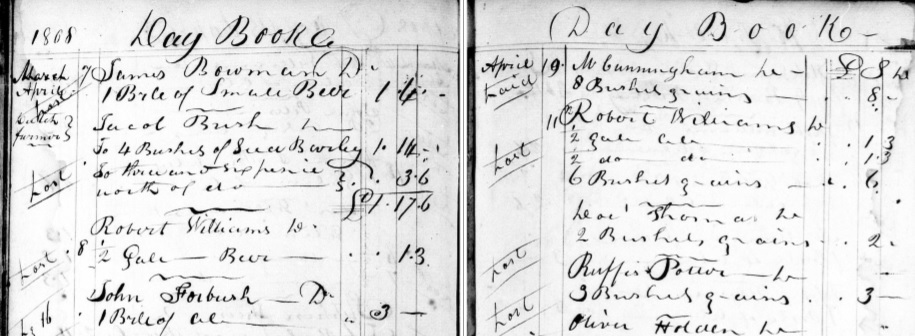 1808 Day Book
March 7 James Bowman Dr
April 1 Brle of Small Beer 1 4 -
Post
Dutch
farmer
Jacob Bush
To 4 Bushels of Seed Barley 1. 14 -
To three and Sixpence
worth of do 3.6
Post
£ 1.17.6
Robert Williams Dr
8 2 Galls Beer 1.3
Post
John Forbush Dr
16 1 Brle of ale 3 -
Day Book
April 19 Mr Cunningham Dr
Paid 8 Bushel grains 8
11 Robert Williams Dr
2 Galls ale 1 3
Post 2 do do 1.3
6 Bushels grains 6
Thomas Dr
2 Bushels grains 2
Post
Ruffis Potter Dr
3 Bushels grains 3 -
Post
Oliver Holden Dr